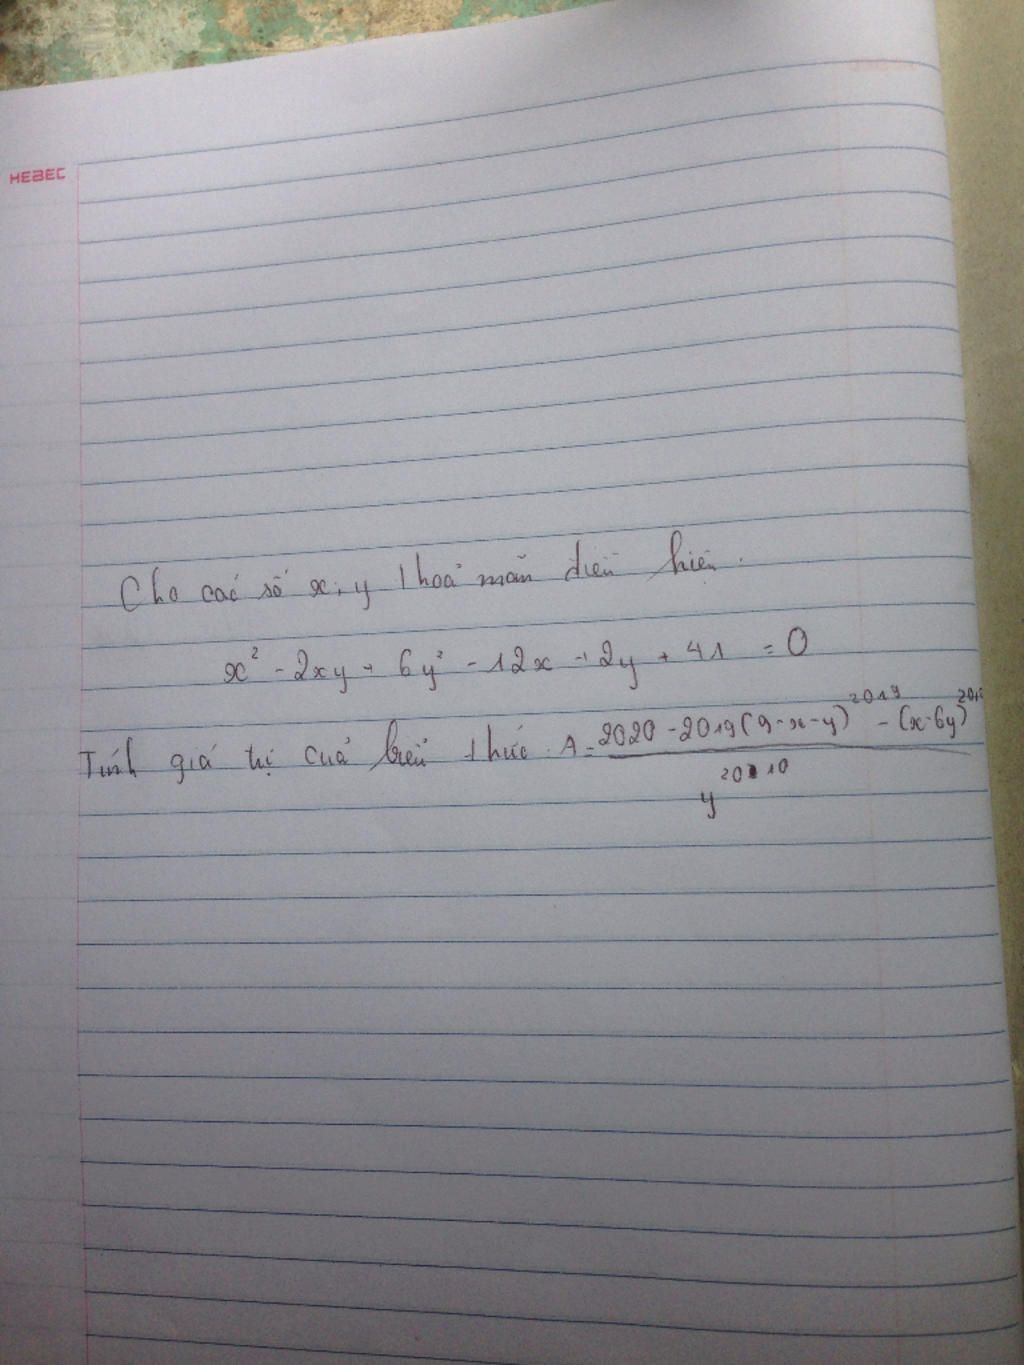 HEBEC
Cho các số x, y thoả mãn điều kiện.
x² - 2xy + 6y² - 12x + 2y + 41 = 0
Tính giá trị của biểu thức A = (2020 - 2019(9-x-y)^2019 - (x-6y)^2018) / y^2010